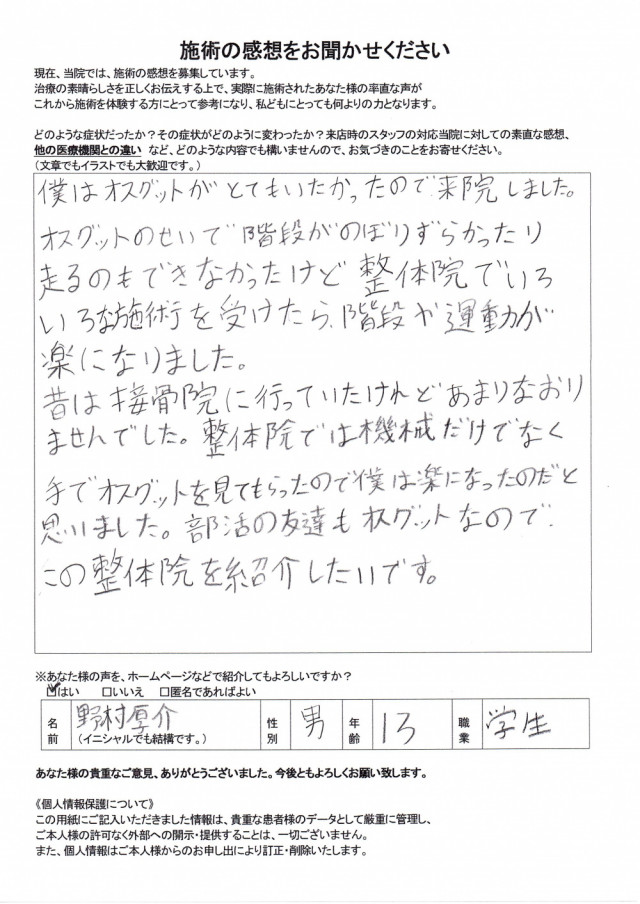 施術の感想をお聞かせください
現在、当院では、施術の感想を募集しています。
治療の素晴らしさを正しくお伝えする上で、実際に施術されたあなた様の率直な声が
これから施術を体験する方にとって参考になり、私どもにとっても何よりの力となります。
どのような症状だったか？その症状がどのように変わったか？来店時のスタッフの対応当院に対しての素直な感想、
他の医療機関との違い など、どのような内容でも構いませんので、お気づきのことをお寄せください。
（文章でもイラストでも大歓迎です。）
僕はオスグットがとてもいたかったので来院しました。
オスグットのせいで階段がのぼりずらかったり
走るのもできなかったけど整体院でいろ
いろな施術を受けたら、階段や運動が
楽になりました。
昔は接骨院に行っていたけれどあまりなおり
ませんでした。整体院では機械だけでなく
手でオスグットを見てもらったので僕は楽になったのだと
思いました。部活の友達もオスグットなので
この整体院を紹介したいです。
※あなた様の声を、ホームページなどで紹介してもよろしいですか？
☑はい □いいえ □匿名であればよい
名前 野村厚介 （イニシャルでも結構です。） 性別 男 年齢 13 職業 学生
あなた様の貴重なご意見、ありがとうございました。今後ともよろしくお願い致します。
《個人情報保護について》
この用紙にご記入いただきました情報は、貴重な患者様のデータとして厳重に管理し、
ご本人様の許可なく外部への開示・提供することは、一切ございません。
また、個人情報はご本人様からのお申し出により訂正・削除いたします。